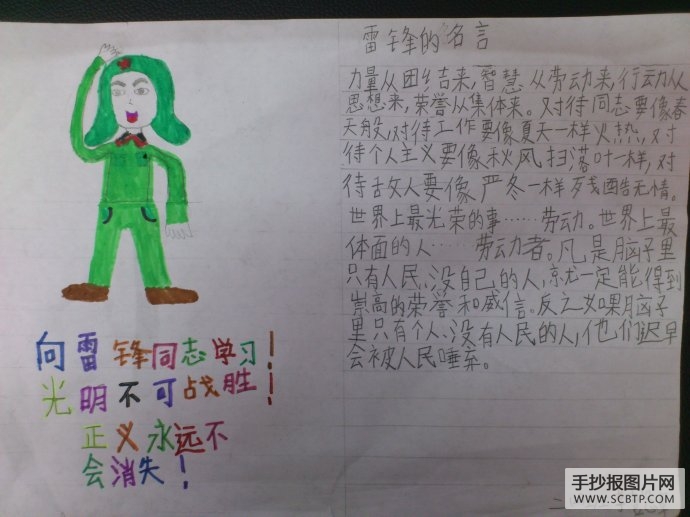 雷锋的名言
力量从团结来,智慧从劳动来,行动从
思想来,荣誉从集体来。对待同志要像春
天般,对待工作要像夏天一样火热,对
待个人主义要像秋风扫落叶一样,对
待敌人要像严冬一样残酷无情。
世界上最光荣的事……劳动。世界上最
体面的人……劳动者。凡是脑子里
只有人民、没自己的人,就一定能得到
崇高的荣誉和威信。反之如果脑子
里只有个人、没有人民的人,他们迟早
会被人民唾弃。
向雷锋同志学习!
光明不可战胜!
正义永远不
会消失!
手抄报图片网
WWW.SCBTP.COM